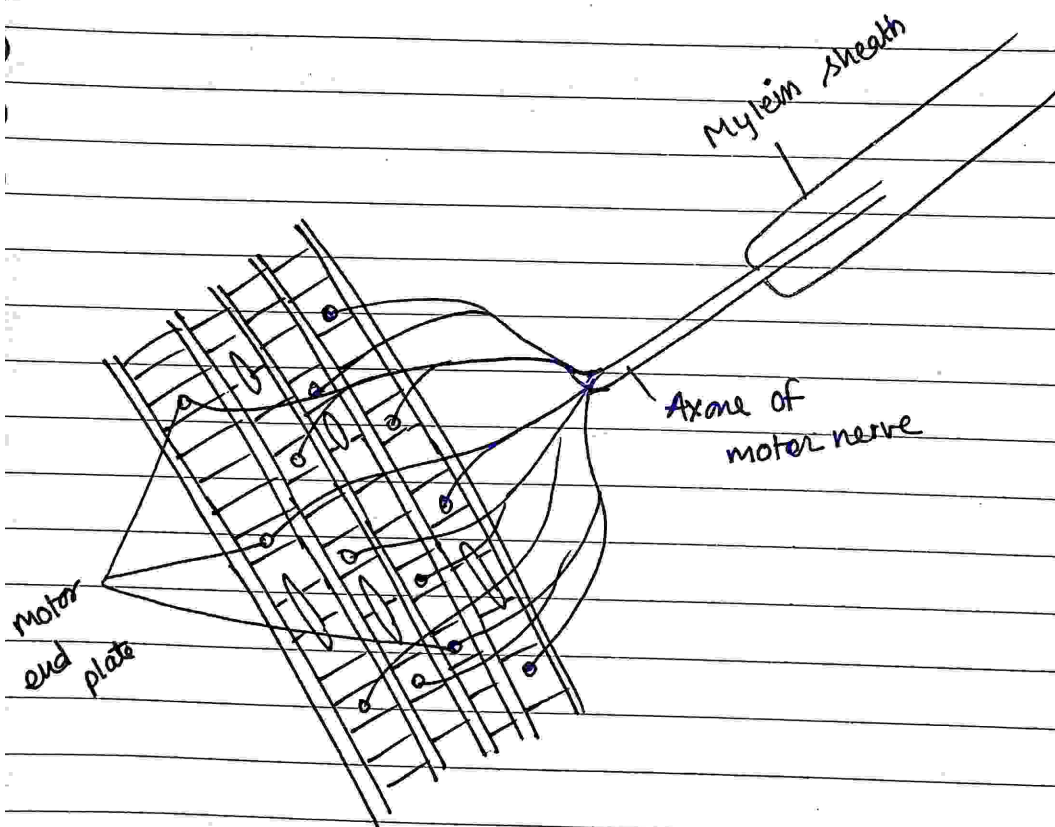 Mylein sheath
Axone of
motor nerve
motor
end
plate